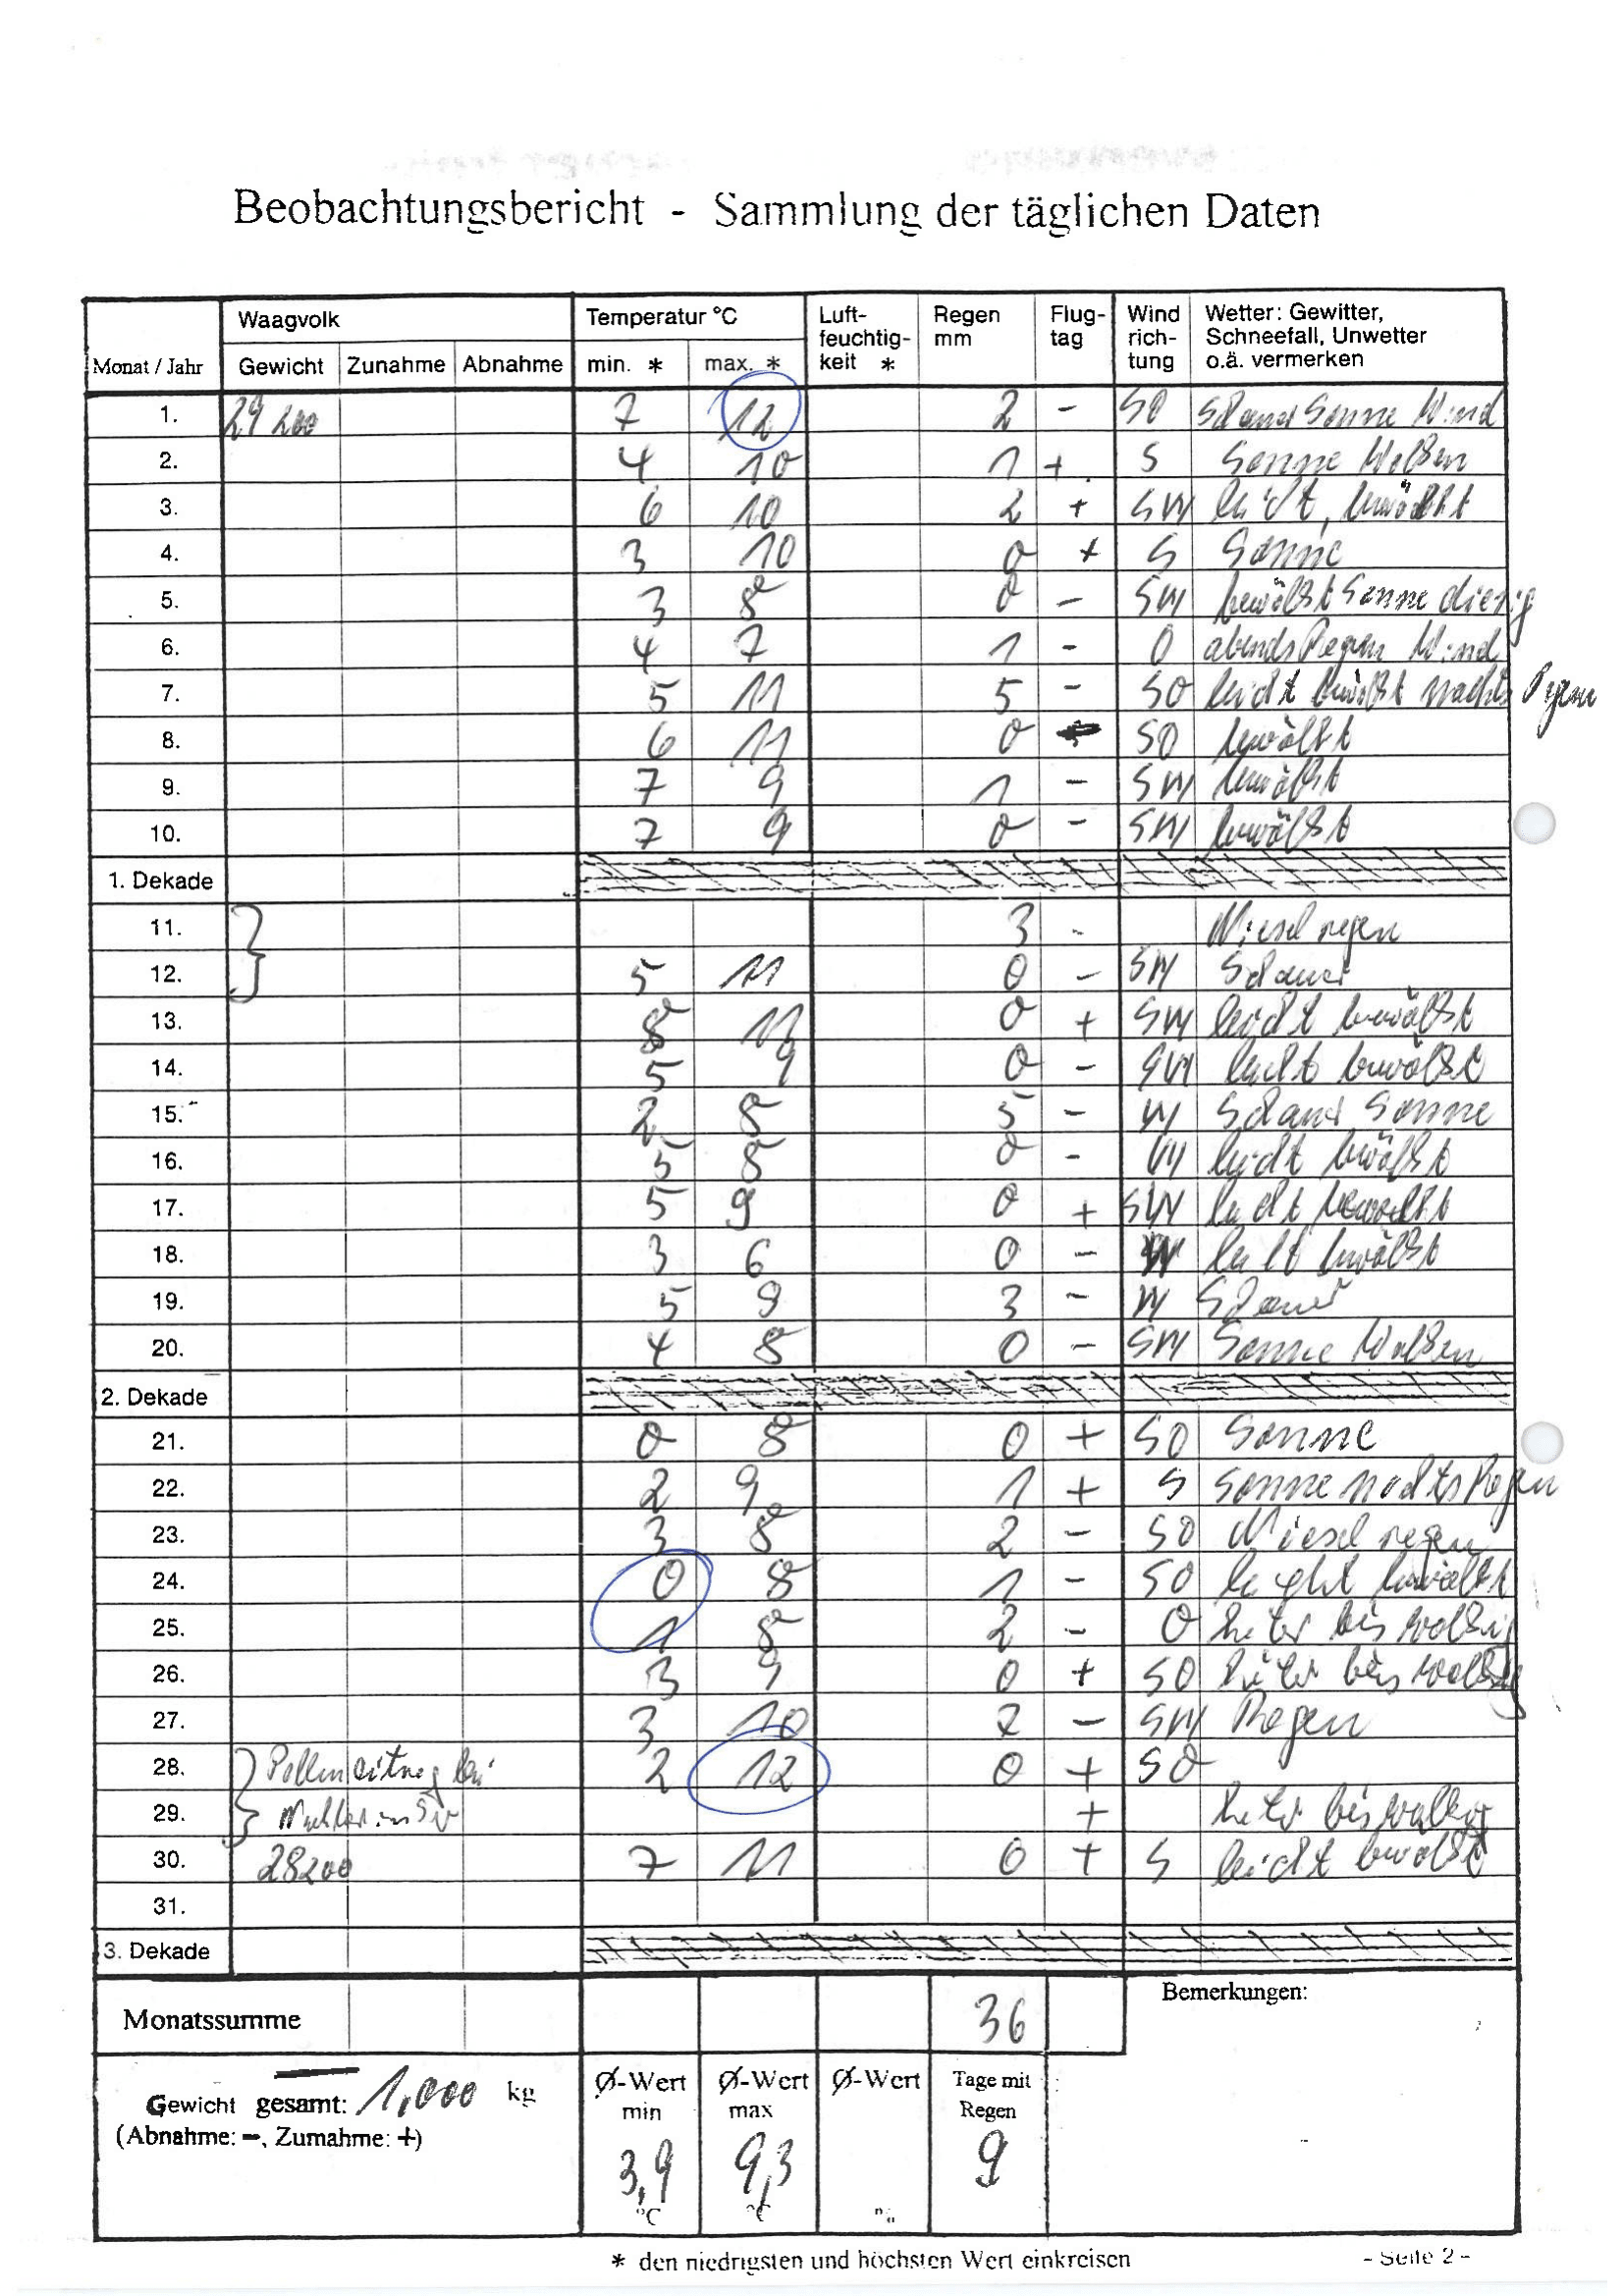 Beobachtungsbericht - Sammlung der täglichen Daten
Monat / Jahr Waagvolk Temperatur °C Luft-feuchtig-keit * Regen mm Flug-tag Wind rich-tung Wetter: Gewitter, Schneefall, Unwetter o.ä. vermerken
Gewicht Zunahme Abnahme min. * max. *
1. 29 200 7 12 2 - SO Schauer Sonne Wind
2. 4 10 1 + S Sonne Wolken
3. 6 10 2 + SW leicht, bewölkt
4. 3 10 0 + S Sonne
5. 3 8 0 - SW bewölkt Sonne diesig
6. 4 7 1 - O abends Regen Wind
7. 5 11 5 - SO leicht bewölkt nachts Regen
8. 6 11 0 SO bewölkt
9. 7 9 1 - SW bewölkt
10. 7 9 0 - SW bewölkt
1. Dekade
11. 3 - Niesel regen
12. 5 11 0 - SW Schauer
13. 8 11 0 + SW leicht bewölkt
14. 5 9 0 - SW leicht bewölkt
15. 2 8 5 - W Schauer Sonne
16. 5 8 0 - W leicht bewölkt
17. 5 9 0 + SW leicht bewölkt
18. 3 6 0 - W leicht bewölkt
19. 5 9 3 - W Schauer
20. 4 8 0 - SW Sonne Wolken
2. Dekade
21. 0 8 0 + SO Sonne
22. 2 9 1 + S Sonne nachts Regen
23. 3 8 2 - SO Niesel regen
24. 0 8 1 - SO leicht bewölkt
25. 1 8 2 - O heiter bis wolkig
26. 3 9 0 + SO heiter bis wolkig
27. 3 10 7 - SW Regen
28. Polleneintrag bei 2 12 0 + SO
29. + heiter bis wolkig
30. 28200 7 11 0 + S leicht bewölkt
31.
3. Dekade
Monatssumme 36 Bemerkungen:
Gewicht gesamt: 1,000 kg
(Abnahme: -, Zumahme: +)
Ø-Wert min 3,9 °C
Ø-Wert max 9,3 °C
Ø-Wert
Tage mit Regen 9
* den niedrigsten und höchsten Wert einkreisen
- Seite 2 -